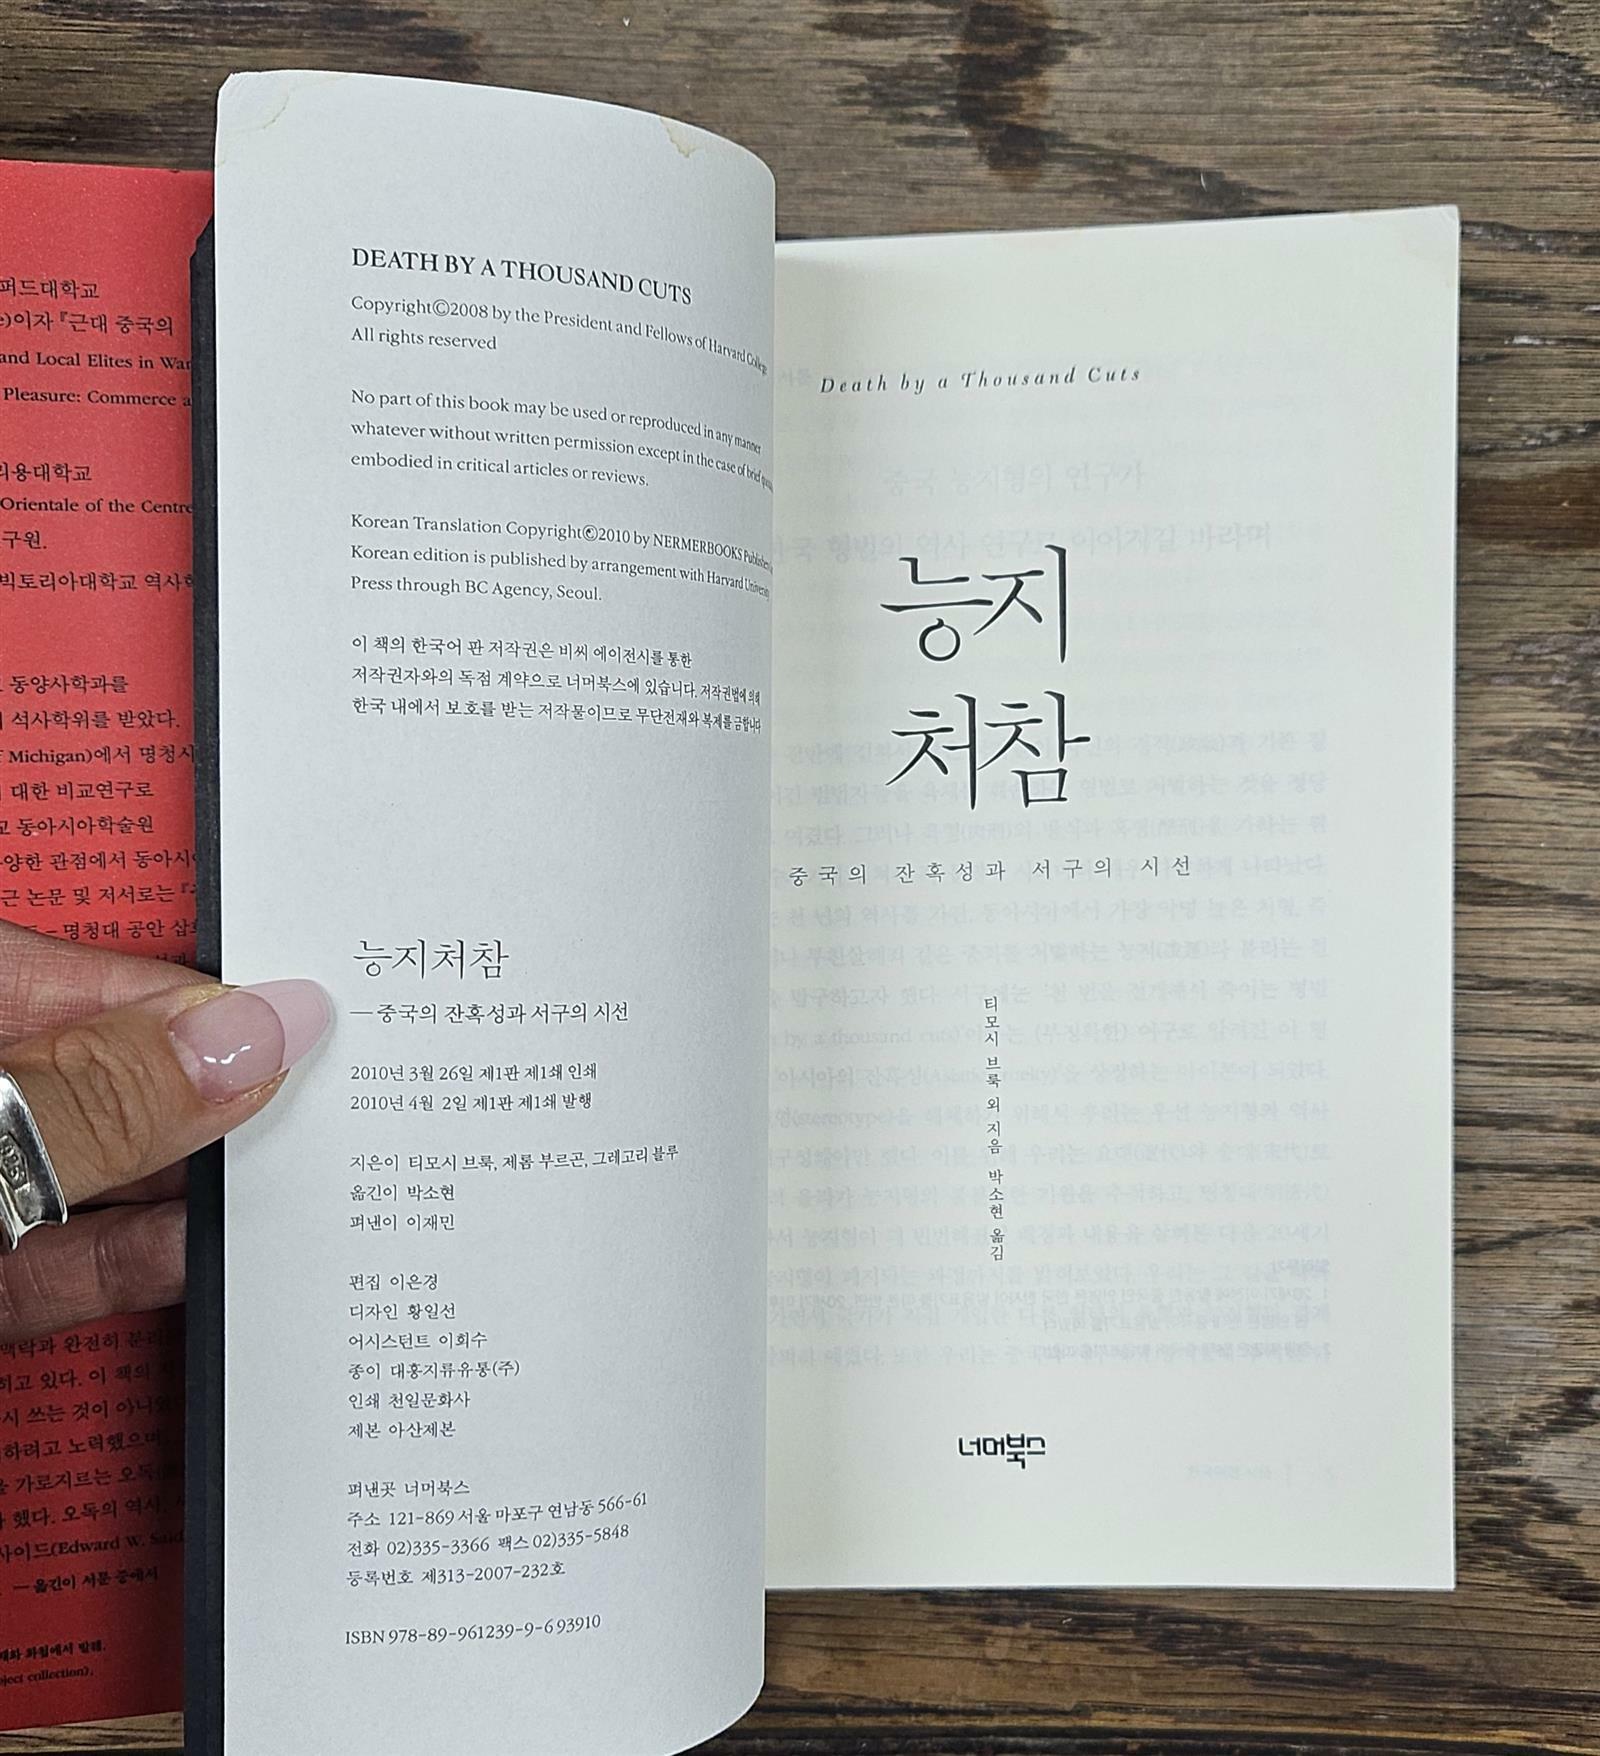 퍼드대학교
e)이자 『근대 중국의
and Local Elites in War
Pleasure: Commerce a
리용대학교
Orientale of the Centre
구원.
빅토리아대학교 역사학
동양사학과를
석사학위를 받았다.
Michigan)에서 명청시
대한 비교연구로
교 동아시아학술원
양한 관점에서 동아시아
근 논문 및 저서로는
명청대 공안 삽화
맥락과 완전히 분리
하고 있다. 이 책의
시 쓰는 것이 아니었
하려고 노력했으며
을 가로지르는 오독
했다. 오독의 역사,
사이드(Edward W. Said
— 옮긴이 서문 중에서
화첩에서 발췌.
oject collection),
DEATH BY A THOUSAND CUTS
Copyright©2008 by the President and Fellows of Harvard College
All rights reserved
No part of this book may be used or reproduced in any manner
whatever without written permission except in the case of brief
embodied in critical articles or reviews.
Korean Translation Copyright©2010 by NERMERBOOKS
Korean edition is published by arrangement with Harvard University
Press through BC Agency, Seoul.
이 책의 한국어 판 저작권은 비씨 에이전시를 통한
저작권자와의 독점 계약으로 너머북스에 있습니다. 저작권법에 의해
한국 내에서 보호를 받는 저작물이므로 무단전재와 복제를 금합니다
능지처참
—중국의 잔혹성과 서구의 시선
2010년 3월 26일 제1판 제1쇄 인쇄
2010년 4월 2일 제1판 제1쇄 발행
지은이 티모시 브룩, 제롬 부르곤, 그레고리 블루
옮긴이 박소현
펴낸이 이재민
편집 이은경
디자인 황일선
어시스턴트 이희수
종이 대흥지류유통(주)
인쇄 천일문화사
제본 아산제본
펴낸곳 너머북스
주소 121-869 서울 마포구 연남동 566-61
전화 02)335-3366 팩스 02)335-5848
등록번호 제313-2007-232호
ISBN 978-89-961239-9-6 93910
Death by a Thousand Cuts
능지
처참
중국의 잔혹성과 서구의 시선
티모시 브룩 외 지음 박소현 옮김
너머북스